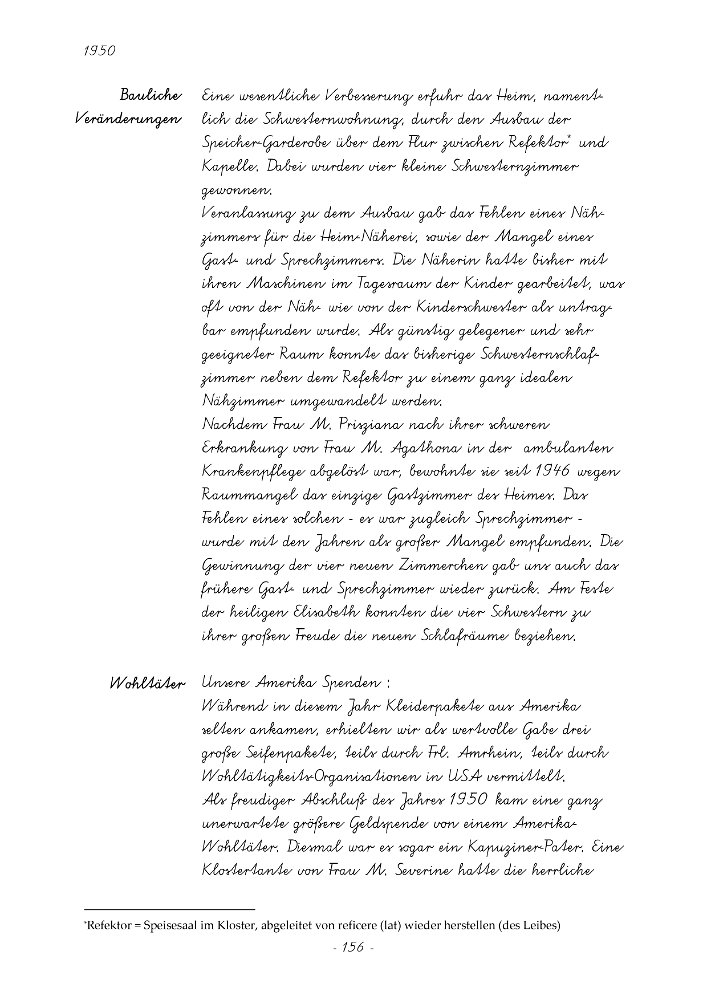 1950
Bauliche Veränderungen
Eine wesentliche Verbesserung erfuhr das Heim, nament-
lich die Schwesternwohnung, durch den Ausbau der
Speicher-Garderobe über dem Flur zwischen Refektor* und
Kapelle. Dabei wurden vier kleine Schwesternzimmer
gewonnen.
Veranlassung zu dem Ausbau gab das Fehlen eines Näh-
zimmers für die Heim-Näherei, sowie der Mangel eines
Gast- und Sprechzimmers. Die Näherin hatte bisher mit
ihren Maschinen im Tagesraum der Kinder gearbeitet, was
oft von der Näh- wie von der Kinderschwester als untrag-
bar empfunden wurde. Als günstig gelegener und sehr
geeigneter Raum konnte das bisherige Schwesternschlaf-
zimmer neben dem Refektor zu einem ganz idealen
Nähzimmer umgewandelt werden.
Nachdem Frau M. Prisziana nach ihrer schweren
Erkrankung von Frau M. Agathona in der ambulanten
Krankenpflege abgelöst war, bewohnte sie seit 1946 wegen
Raummangel das einzige Gastzimmer des Heimes. Das
Fehlen eines solchen - es war zugleich Sprechzimmer -
wurde mit den Jahren als großer Mangel empfunden. Die
Gewinnung der vier neuen Zimmerchen gab uns auch das
frühere Gast- und Sprechzimmer wieder zurück. Am Feste
der heiligen Elisabeth konnten die vier Schwestern zu
ihrer großen Freude die neuen Schlafräume beziehen.
Wohltäter
Unsere Amerika Spenden :
Während in diesem Jahr Kleiderpakete aus Amerika
selten ankamen, erhielten wir als wertvolle Gabe drei
große Seifenpakete, teils durch Frl. Amrhein, teils durch
Wohltätigkeits-Organisationen in USA vermittelt.
Als freudiger Abschluß des Jahres 1950 kam eine ganz
unerwartete größere Geldspende von einem Amerika-
Wohltäter. Diesmal war es sogar ein Kapuziner-Pater. Eine
Klostertante von Frau M. Severine hatte die herrliche
*Refektor = Speisesaal im Kloster, abgeleitet von reficere (lat) wieder herstellen (des Leibes)
- 156 -